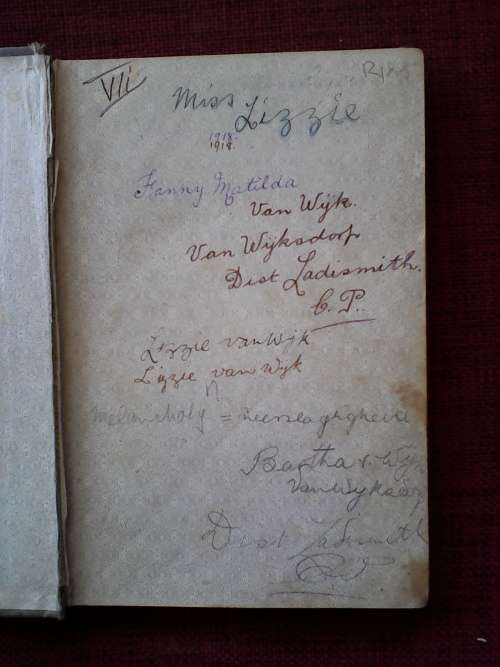 VII
Miss Lizzie
1918.
1918.
Fanny Matilda
Van Wijk.
Van Wijksdorp
Dist Ladismith.
C. P.
Lizzie van Wijk
Lizzie van Wyk
Melancholy = neerslagtigheid
Bartha v. Wyk
Van Wyksdorp
Dist Ladismith